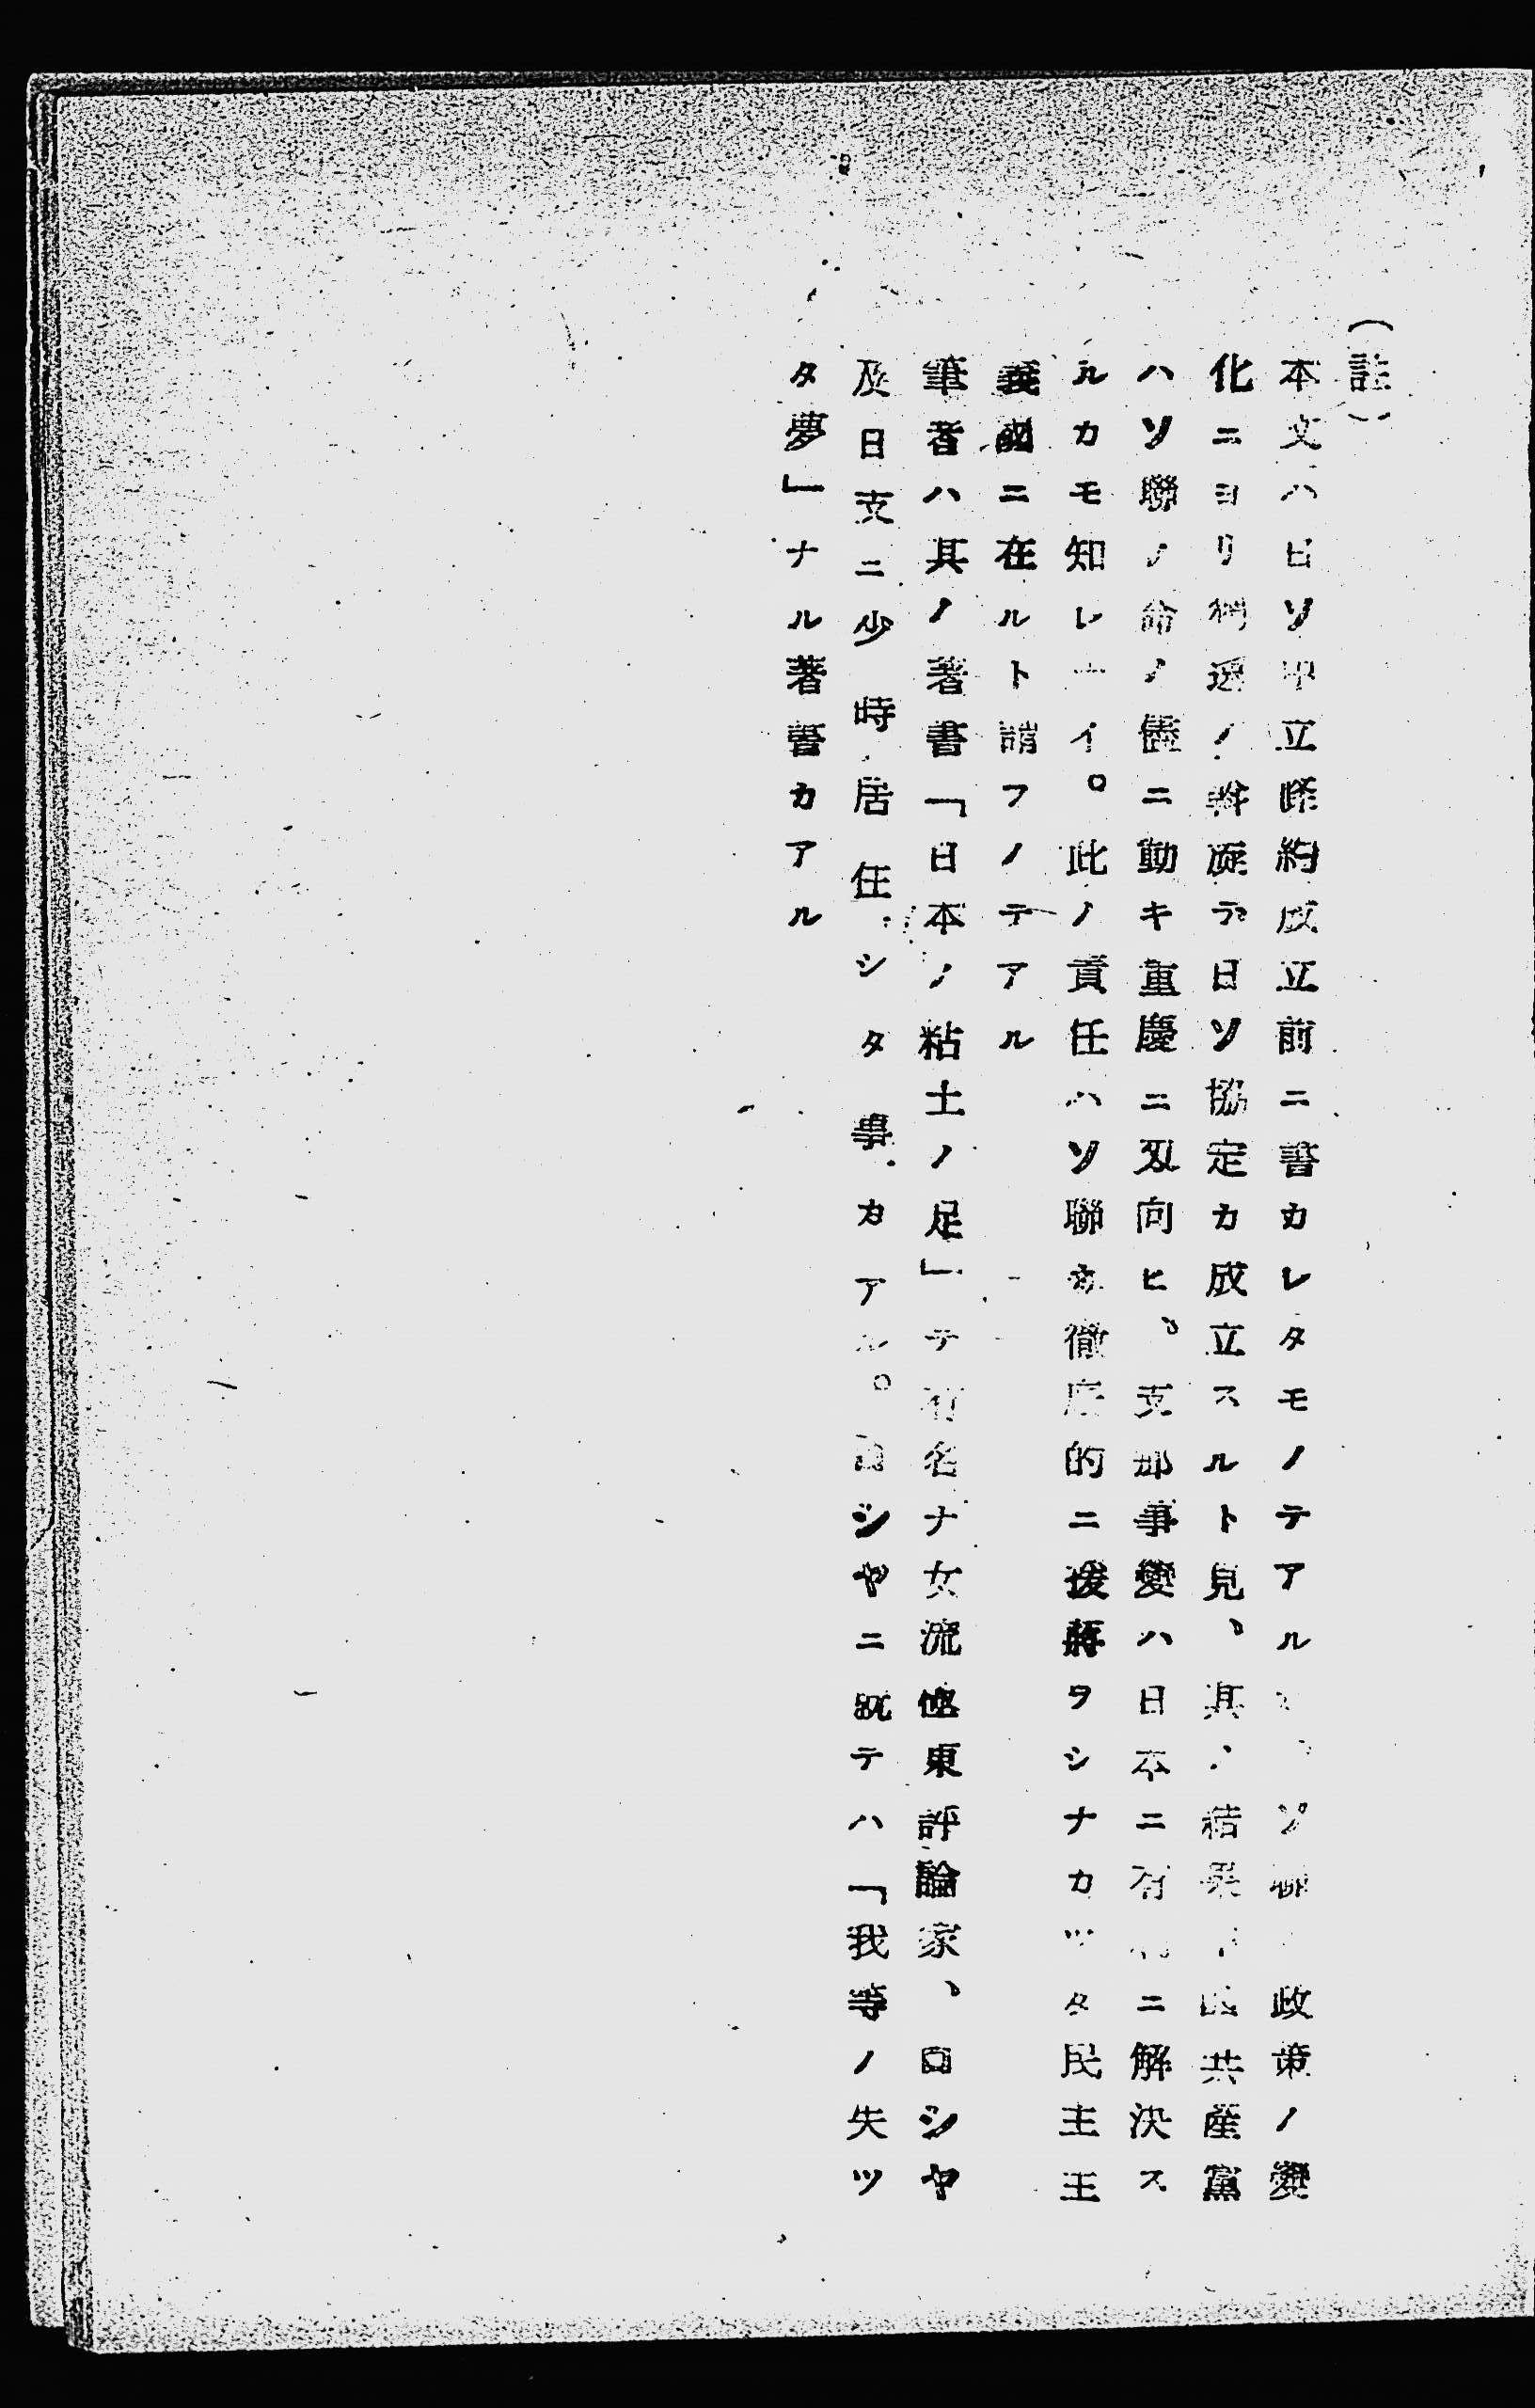 (註)
本文ハ日ソ中立條約成立前ニ書カレタモノテアルソ聯政策ノ變
化ニヨリ獨逸ノ斡旋テ日ソ協定カ成立スルト見、其ノ結果中國共產黨
ハソ聯ノ命ノ儘ニ動キ重慶ニ刄向ヒ、支那事變ハ日本ニ有利ニ解決ス
ルカモ知レナイ。此ノ責任ハソ聯ホ徹底的ニ援蔣ヲシナカツタ民主主
義國ニ在ルト謂フノテアル
筆者ハ其ノ著書「日本ノ粘土ノ足」テ有名ナ女流極東評論家、ロシヤ
及日支ニ少時居住シタ事カアル。シヤニ就テハ「我等ノ失ツ
タ夢」ナル著書カアル